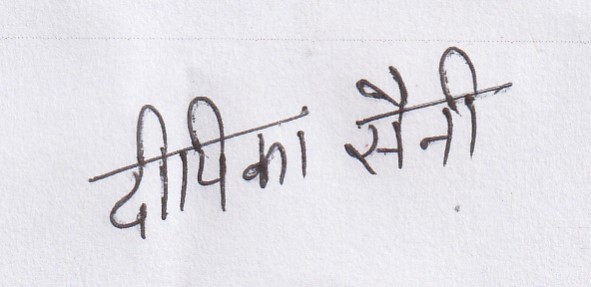 दीपिका सैनी